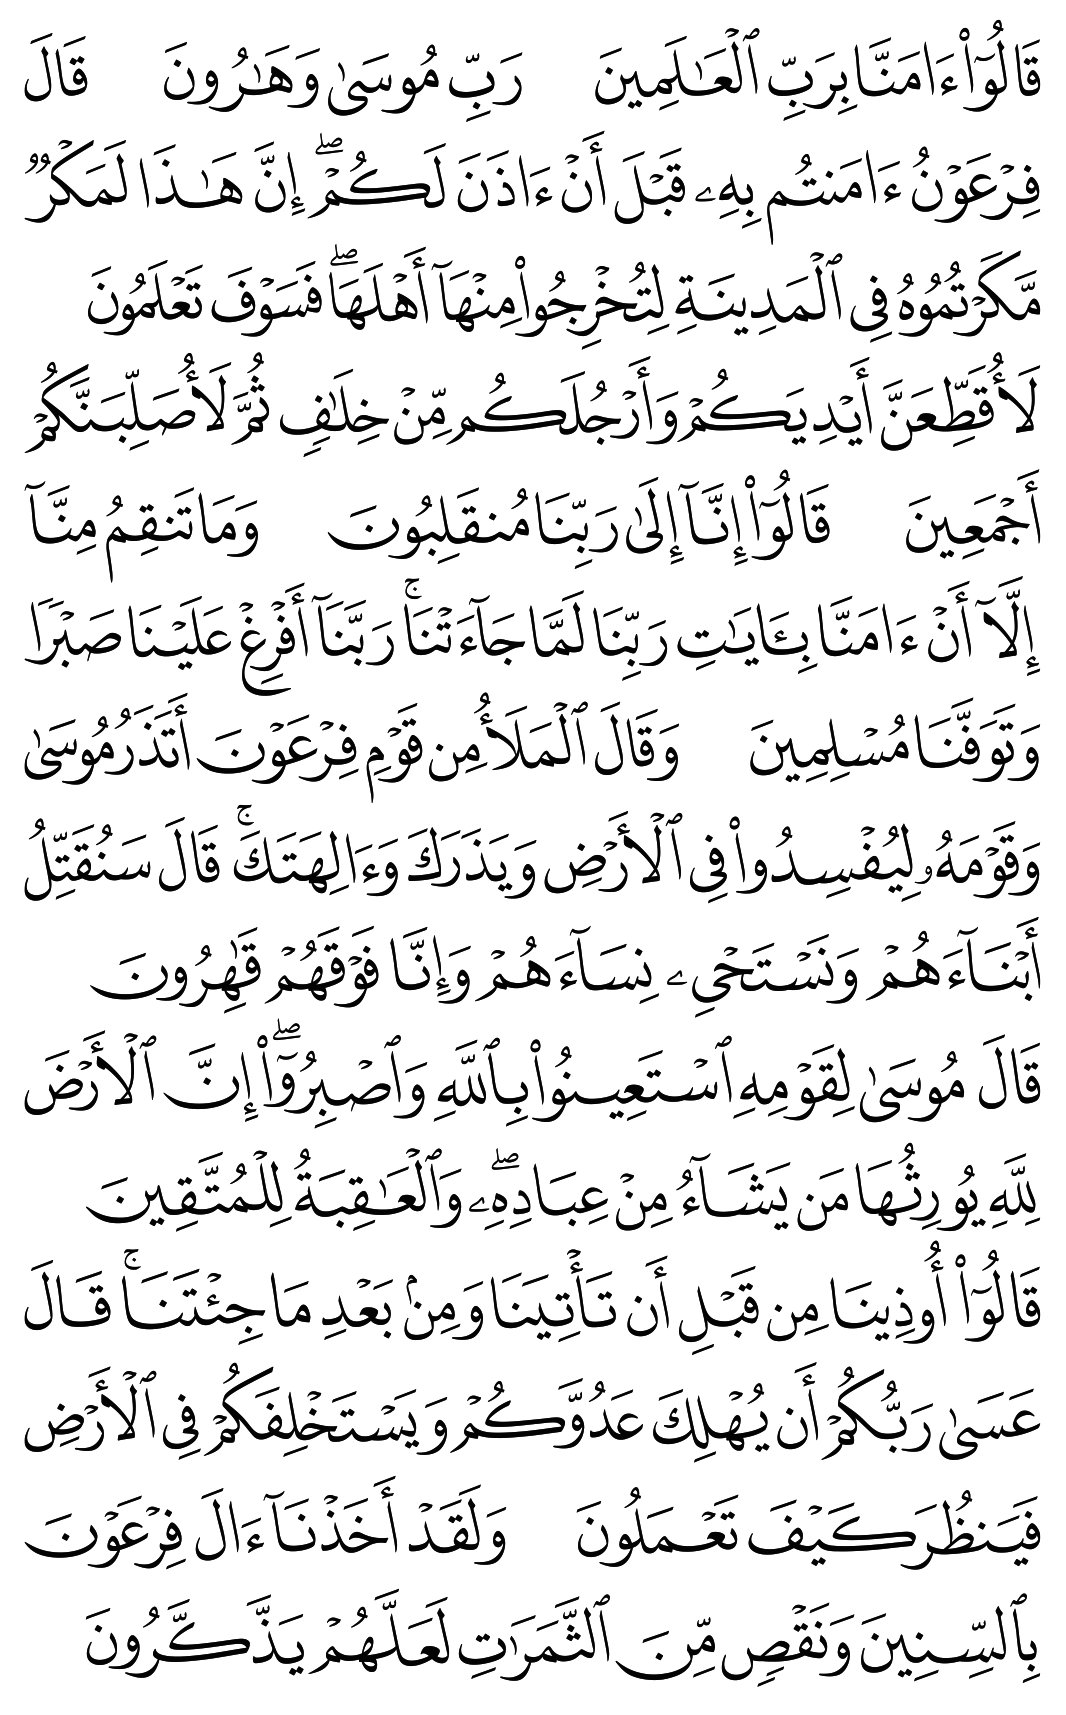 قَالُوٓا۟ ءَامَنَّا بِرَبِّ ٱلْعَـٰلَمِينَ رَبِّ مُوسَىٰ وَهَـٰرُونَ قَالَ
فِرْعَوْنُ ءَامَنتُم بِهِۦ قَبْلَ أَنْ ءَاذَنَ لَكُمْ ۖ إِنَّ هَـٰذَا لَمَكْرٌ
مَّكَرْتُمُوهُ فِى ٱلْمَدِينَةِ لِتُخْرِجُوا۟ مِنْهَآ أَهْلَهَا ۖ فَسَوْفَ تَعْلَمُونَ
لَأُقَطِّعَنَّ أَيْدِيَكُمْ وَأَرْجُلَكُم مِّنْ خِلَـٰفٍ ثُمَّ لَأُصَلِّبَنَّكُمْ
أَجْمَعِينَ قَالُوٓا۟ إِنَّآ إِلَىٰ رَبِّنَا مُنقَلِبُونَ وَمَا تَنقِمُ مِنَّآ
إِلَّآ أَنْ ءَامَنَّا بِـَٔايَـٰتِ رَبِّنَا لَمَّا جَآءَتْنَا ۚ رَبَّنَآ أَفْرِغْ عَلَيْنَا صَبْرًا
وَتَوَفَّنَا مُسْلِمِينَ وَقَالَ ٱلْمَلَأُ مِن قَوْمِ فِرْعَوْنَ أَتَذَرُ مُوسَىٰ
وَقَوْمَهُۥ لِيُفْسِدُوا۟ فِى ٱلْأَرْضِ وَيَذَرَكَ وَءَالِهَتَكَ ۚ قَالَ سَنُقَتِّلُ
أَبْنَآءَهُمْ وَنَسْتَحْىِۦ نِسَآءَهُمْ وَإِنَّا فَوْقَهُمْ قَـٰهِرُونَ
قَالَ مُوسَىٰ لِقَوْمِهِ ٱسْتَعِينُوا۟ بِٱللَّهِ وَٱصْبِرُوٓا۟ ۖ إِنَّ ٱلْأَرْضَ
لِلَّهِ يُورِثُهَا مَن يَشَآءُ مِنْ عِبَادِهِۦ ۖ وَٱلْعَـٰقِبَةُ لِلْمُتَّقِينَ
قَالُوٓا۟ أُوذِينَا مِن قَبْلِ أَن تَأْتِيَنَا وَمِنۢ بَعْدِ مَا جِئْتَنَا ۚ قَالَ
عَسَىٰ رَبُّكُمْ أَن يُهْلِكَ عَدُوَّكُمْ وَيَسْتَخْلِفَكُمْ فِى ٱلْأَرْضِ
فَيَنظُرَ كَيْفَ تَعْمَلُونَ وَلَقَدْ أَخَذْنَآ ءَالَ فِرْعَوْنَ
بِٱلسِّنِينَ وَنَقْصٍ مِّنَ ٱلثَّمَرَٰتِ لَعَلَّهُمْ يَذَّكَّرُونَ